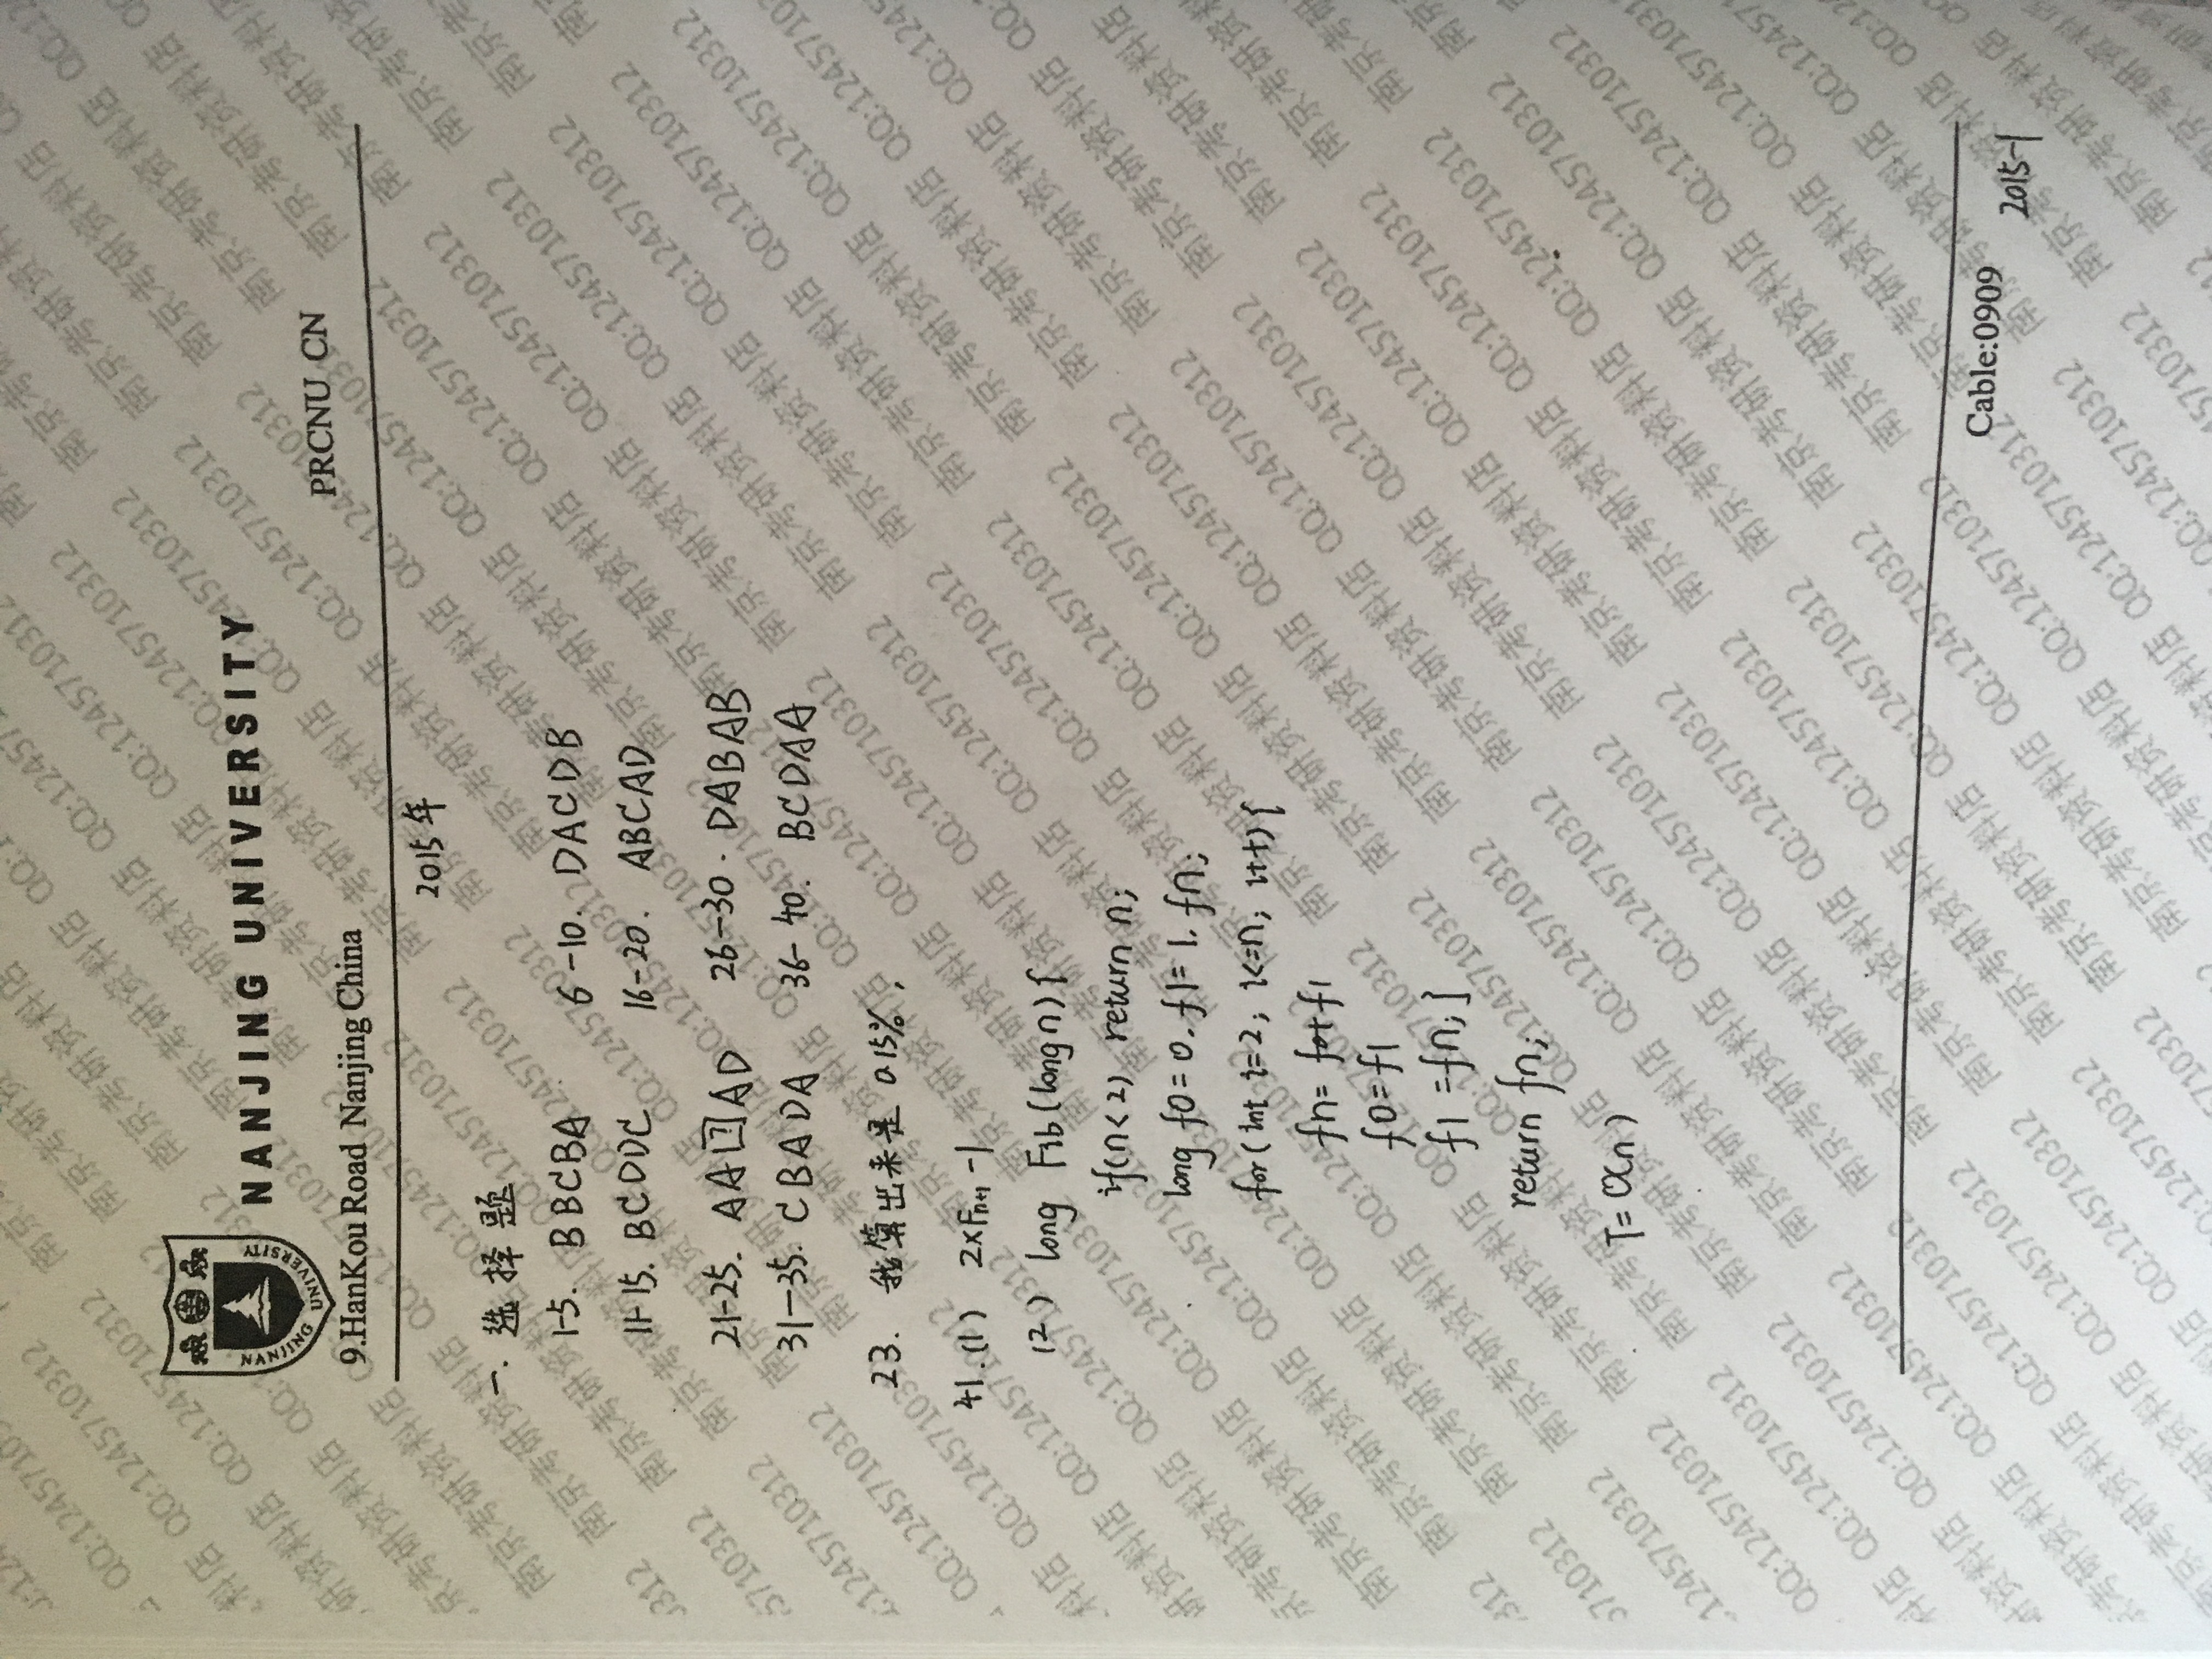 NANJING UNIVERSITY
NANJING UNIVERSITY
PRCNU CN
9.HanKou Road Nanjing China
2015年
一. 选择题
1-5. BBCBA 6-10. DACDB
11-15. BCDDC 16-20. ABCAD
21-25. AA?AD 26-30. DABAB
31-35. CBADA 36-40. BCDAA
23. 我算出来是 0.15%,
41.(1) 2×Fn+1 -1
(2) long Fib(long n){
if(n<2) return n;
long f0=0, f1=1, fn;
for(int i=2; i<=n; i++){
fn= f0+f1
f0=f1
f1=fn;}
return fn;
T=O(n)
Cable:0909
2015-1
南京考研资料店 QQ:1245710312